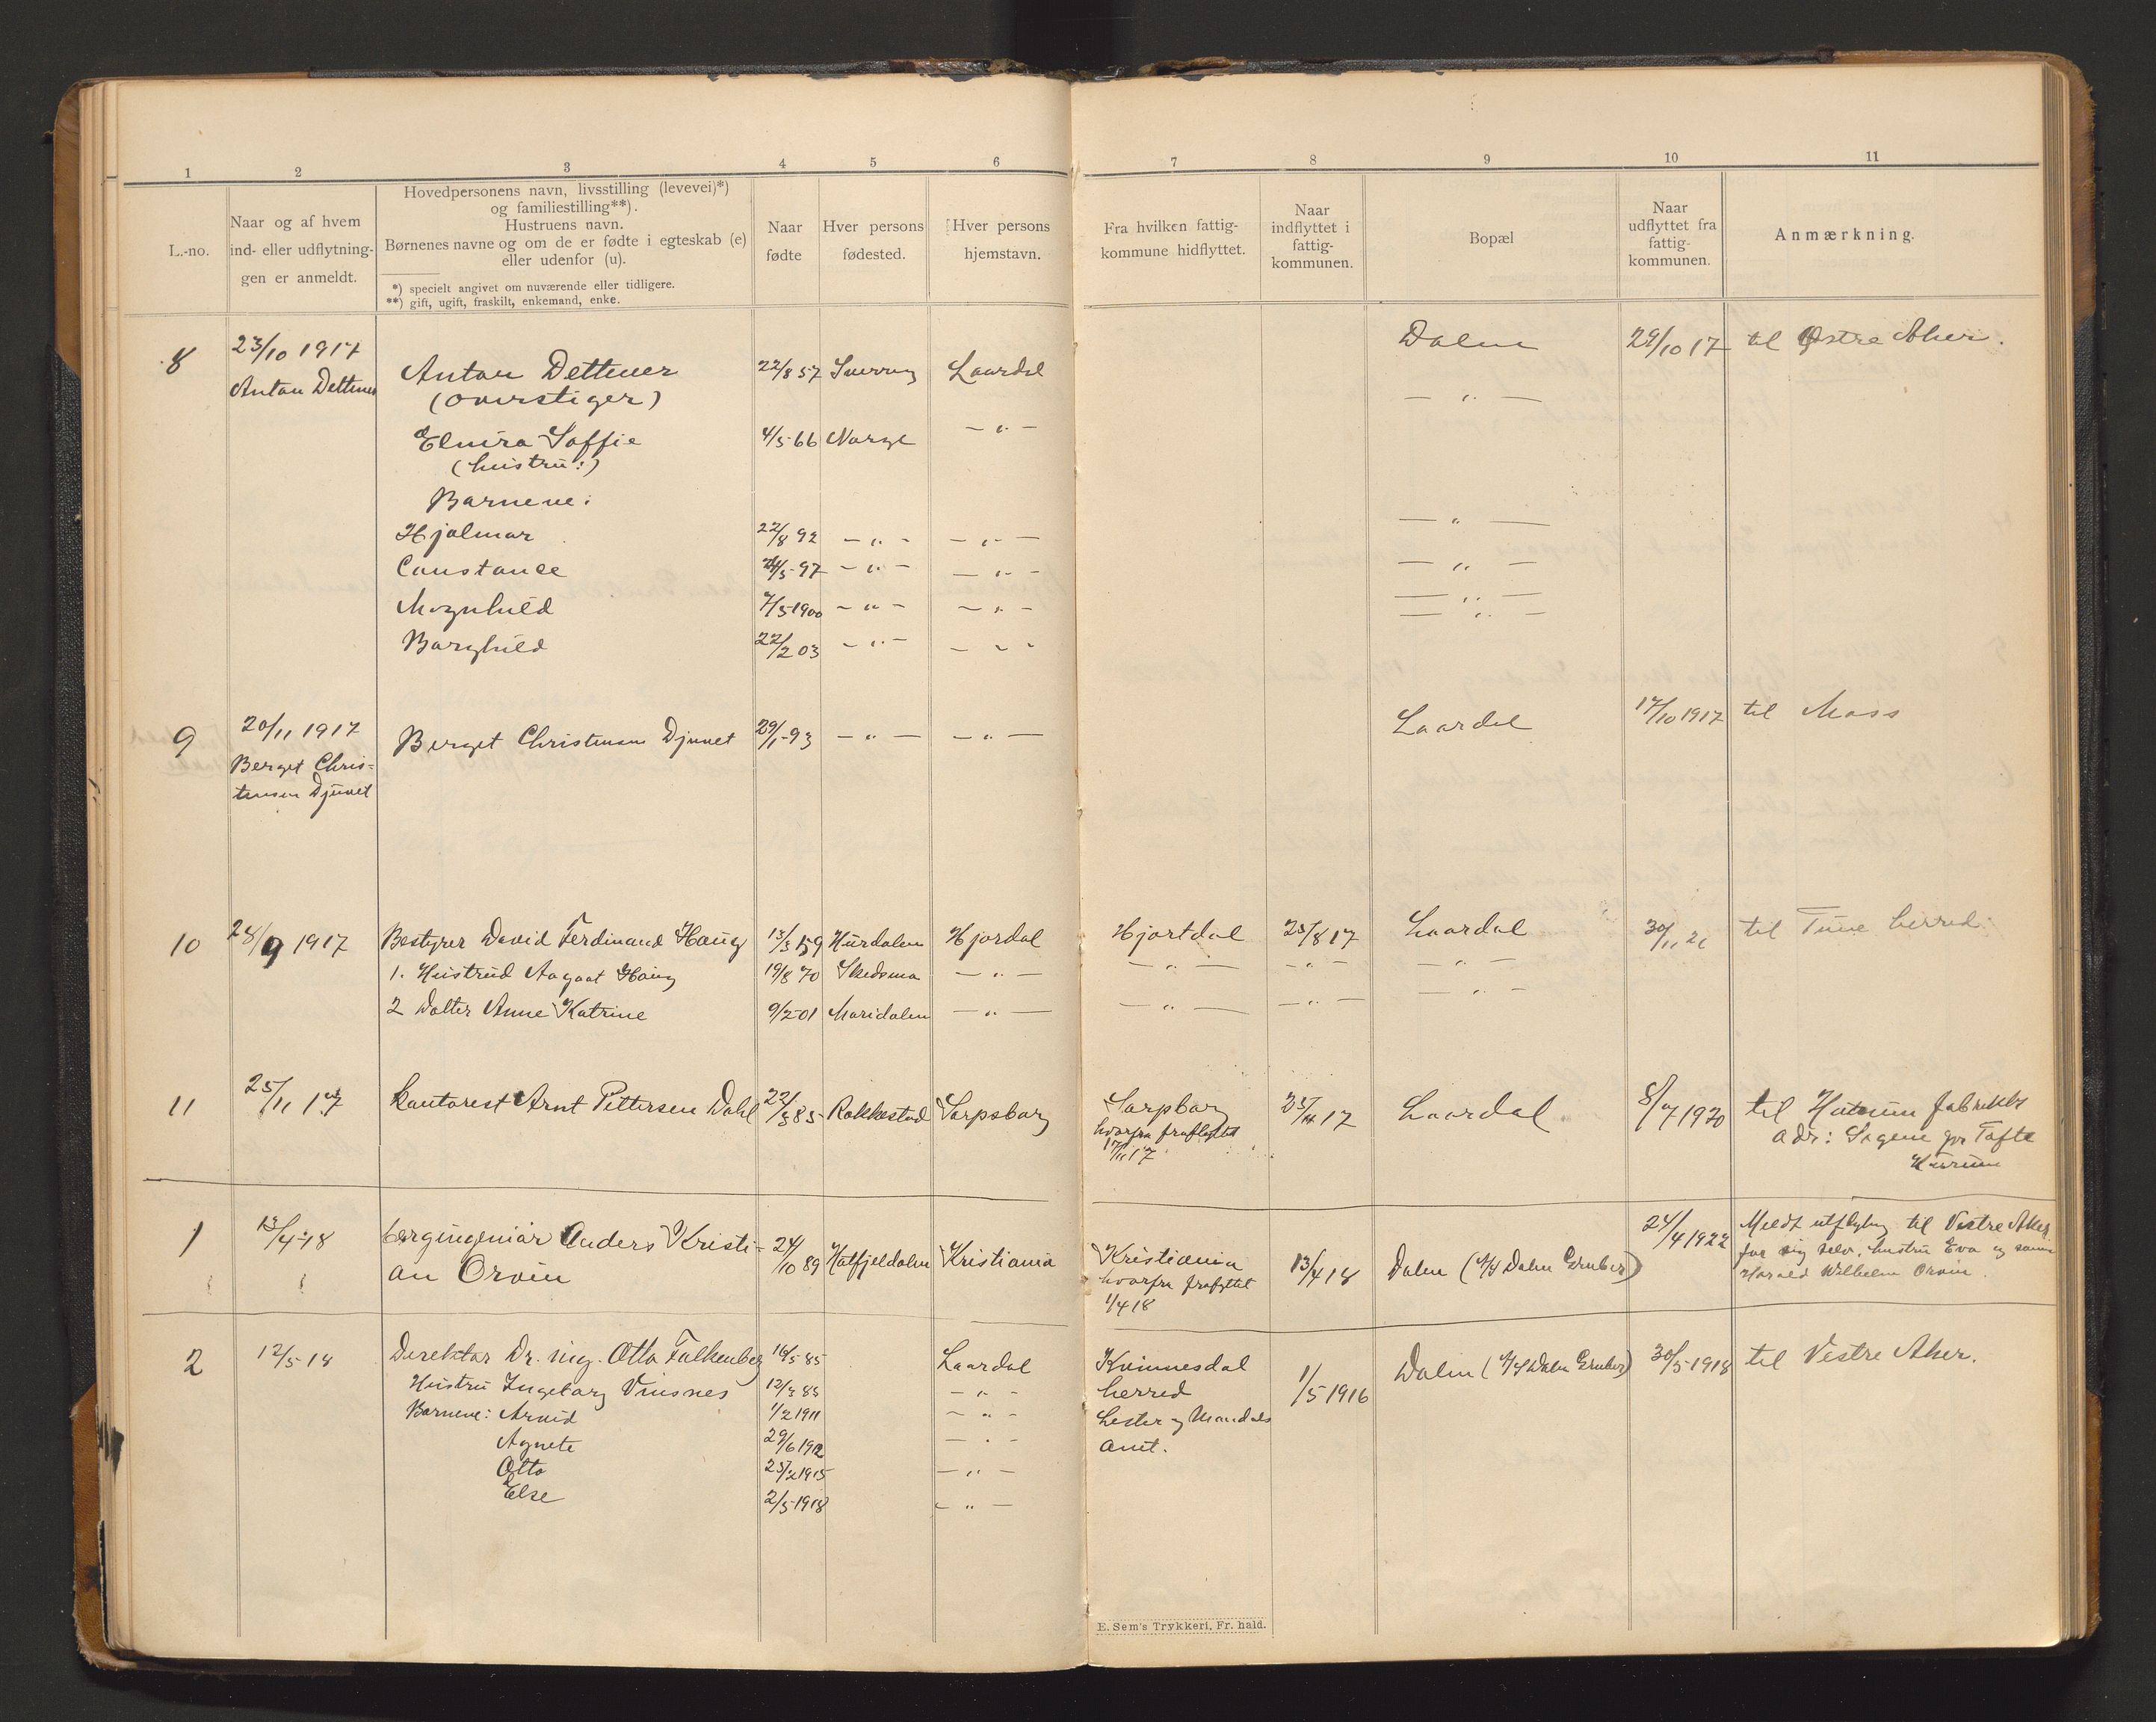 1 2 3 4 5 6 7 8 9 10 11
L.-no.
Naar og af hvem
ind- eller udflytnin-
gen er anmeldt.
Hovedpersonens navn, livsstilling (levevei)*)
og familiestilling**).
Hustruens navn.
Børnenes navne og om de er fødte i egteskab (e)
eller udenfor (u).
*) specielt angivet om nuværende eller tidligere.
**) gift, ugift, fraskilt, enkemand, enke.
Naar
fødte
Hver persons
fødested.
Hver persons
hjemstavn.
Fra hvilken fattig-
kommune hidflyttet.
Naar
indflyttet i
fattig-
kommunen.
Bopæl
Naar
udflyttet fra
fattig-
kommunen.
Anmærkning.
8 23/10 1917 Dalen 29/10 17 til Østre Aker.
Anton Dettmer Anton Dettmer 22/8 57 Laardal
(overstiger) — " —
Elmira Soffie 4/5 66 Norge — " —
(hustru:)
Barnene:
Hjalmar 22/8 92 — " — — " — — " —
Constance 24/5-97 — " — — " — — " —
Magnhild 7/5-1900 — " — — " — — " —
Borghild 22/2 03 — " — — " — — " —
9 20/11 1917 Berget Christensen Djuvet 29/1-93 — " — — " — Laardal 17/10 1917 til Moss
Berget Chris=
tensen Djuvet
10 28/9 1917 Bestyrer David Ferdinand Haug 13/3 59 Hurdalen Hjordal Hjortdal 25/8 17 Laardal 30/11 21 til Tune herred.
1. Hustrud Aagaat Haug 19/8 70 Skedsmo — " — — " — — " — — " —
2 Datter Anne Katrine 9/2-01 Maridalen — " — — " — — " — — " —
11 25/11 17 kontorist Arnt Pettersen Dahl 22/3 85 Rakkestad Sarpsborg Sarpborg 23/11 17 Laardal 8/7 1920 til Hurum fabrikker
hvorfra fraflyttet adr: Sagene pr Tofte
17/11 17 Hurum
1 13/4-18 bergingeniør Anders Kristi- 24/10 89 Hatfjeldalen Kristiania Kristiania 13/4 18 Dalen (A/S Dalen Gruber) 24/4 1922 Meldt utflytng til Vestre Aker
an Orvin hvorfra fraflyttet for sig selv, hustru Eva og sønn
1/4 18 Harald Wilhelm Orvin.
2 12/5-18 Direktør Dr. ing. Otto Falkenberg 16/5 85 Laardal Kvinnesdal 1/5 1916 Dalen (A/S Dalen Gruber) 30/5 1918 til Vestre Aker.
Hustru Ingeborg Vinsnes 12/3 85 — " — herred
Barnene: Arvid 1/2 1911 — " — Lister og Mandals
Agnete 29/6 1912 — " — amt.
Otto 25/2 1915 — " —
Else 2/5-1918 — " —
E. Sem's Trykkeri, Fr. hald.